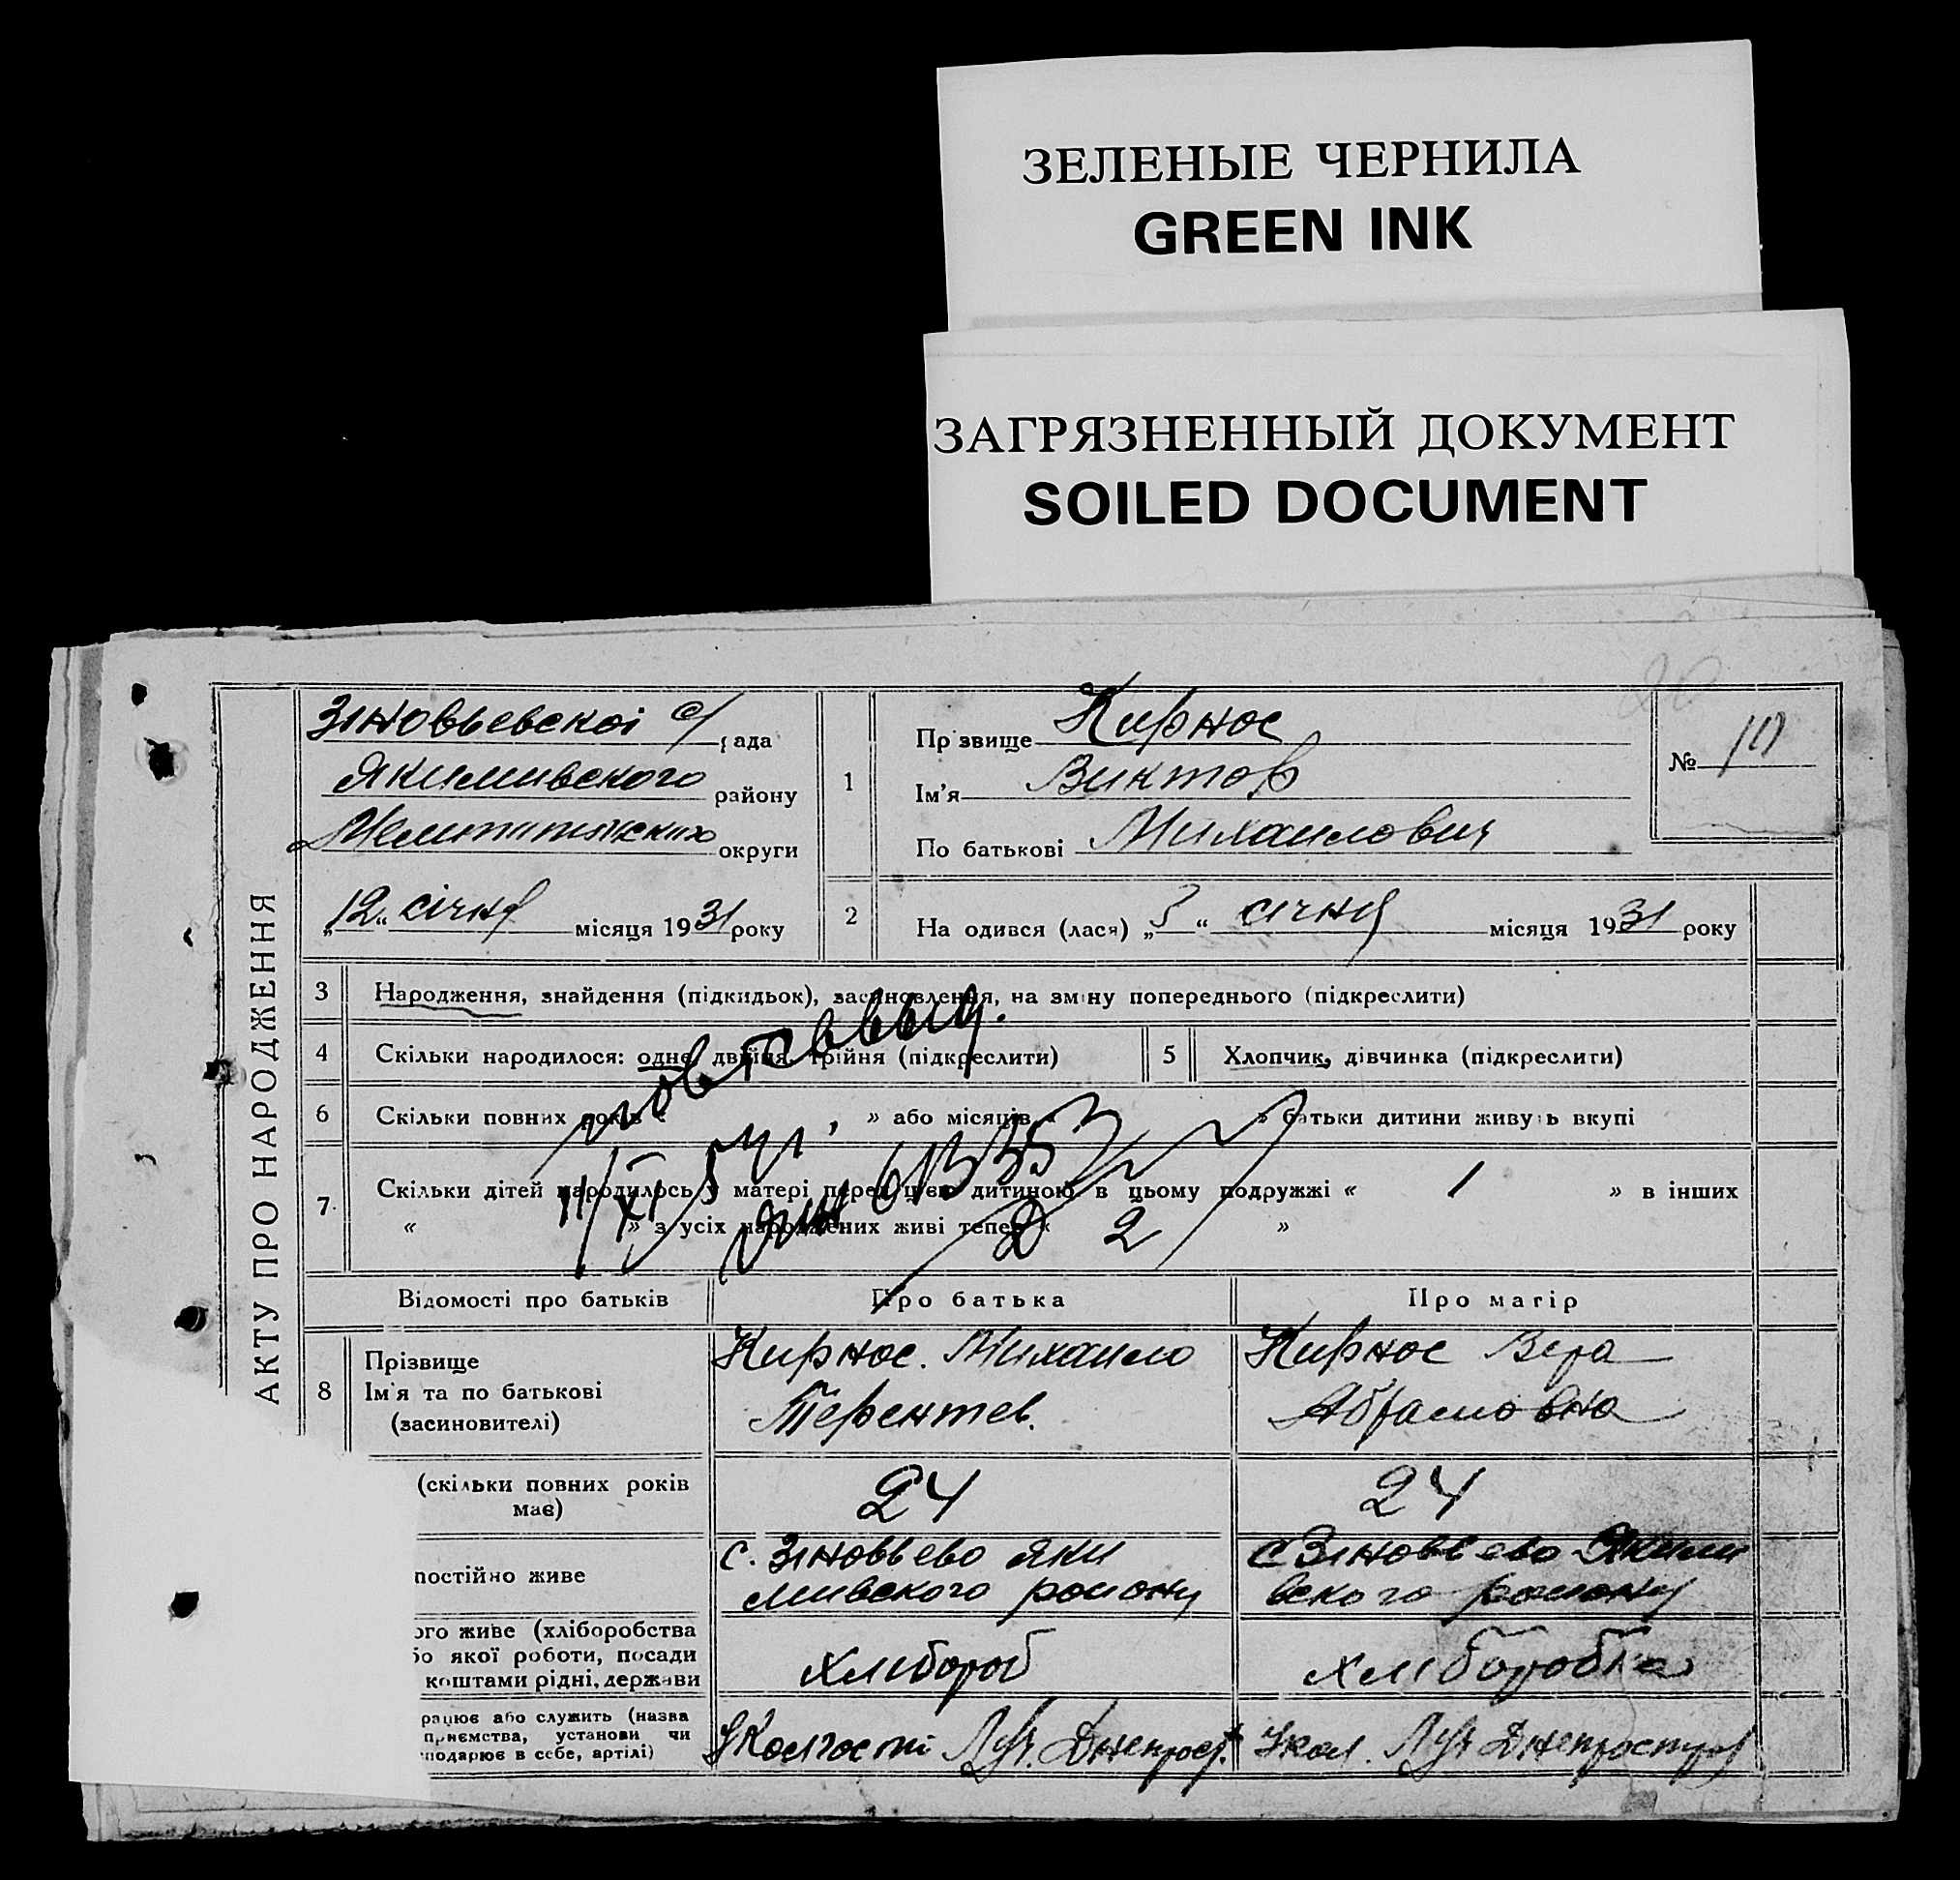 ЗЕЛЕНЫЕ ЧЕРНИЛА
GREEN INK
ЗАГРЯЗНЕННЫЙ ДОКУМЕНТ
SOILED DOCUMENT
АКТУ ПРО НАРОДЖЕННЯ
Зіновьевскої с/ рада
Якимивского району
округи
„12“ січня місяця 1931 року
1
Прізвище Кирнос
Ім'я Виктор
По батькові Михаилович
№ 10
2
На одився (лася) „3“ січня місяця 1931 року
3 Народження, знайдення (підкидьок), засиновлення, на зміну попереднього (підкреслити)
4 Скільки народилося: одне, двійня, трійня (підкреслити)
5 Хлопчик, дівчинка (підкреслити)
6 Скільки повних років « » або місяців « » батьки дитини живуть вкупі
повт. с выд.
11/XI 54 г.
7. Скільки дітей народилось у матері перед цією дитиною в цьому подружжі « 1 » в інших
« » з усіх народжених живі тепер « 2 »
Відомості про батьків Про батька Про матір
8 Прізвище
Ім'я та по батькові
(засиновителі)
Кирнос. Михаило
Терентев.
Кирнос Вера
Абрамовна
(скільки повних років
має)
24
24
постійно живе
с. Зіновьево Яки
мивского району
с Зіновьево Якими
вского району
ого живе (хліборобства
бо якої роботи, посади
коштами рідні, держави
хлибороб
хлиборобка
рацює або служить (назва
приємства, установи чи
сподарює в себе, артілі)
У Колгоспі Луч. Днепрост.
У кол. Луч Днепрострой